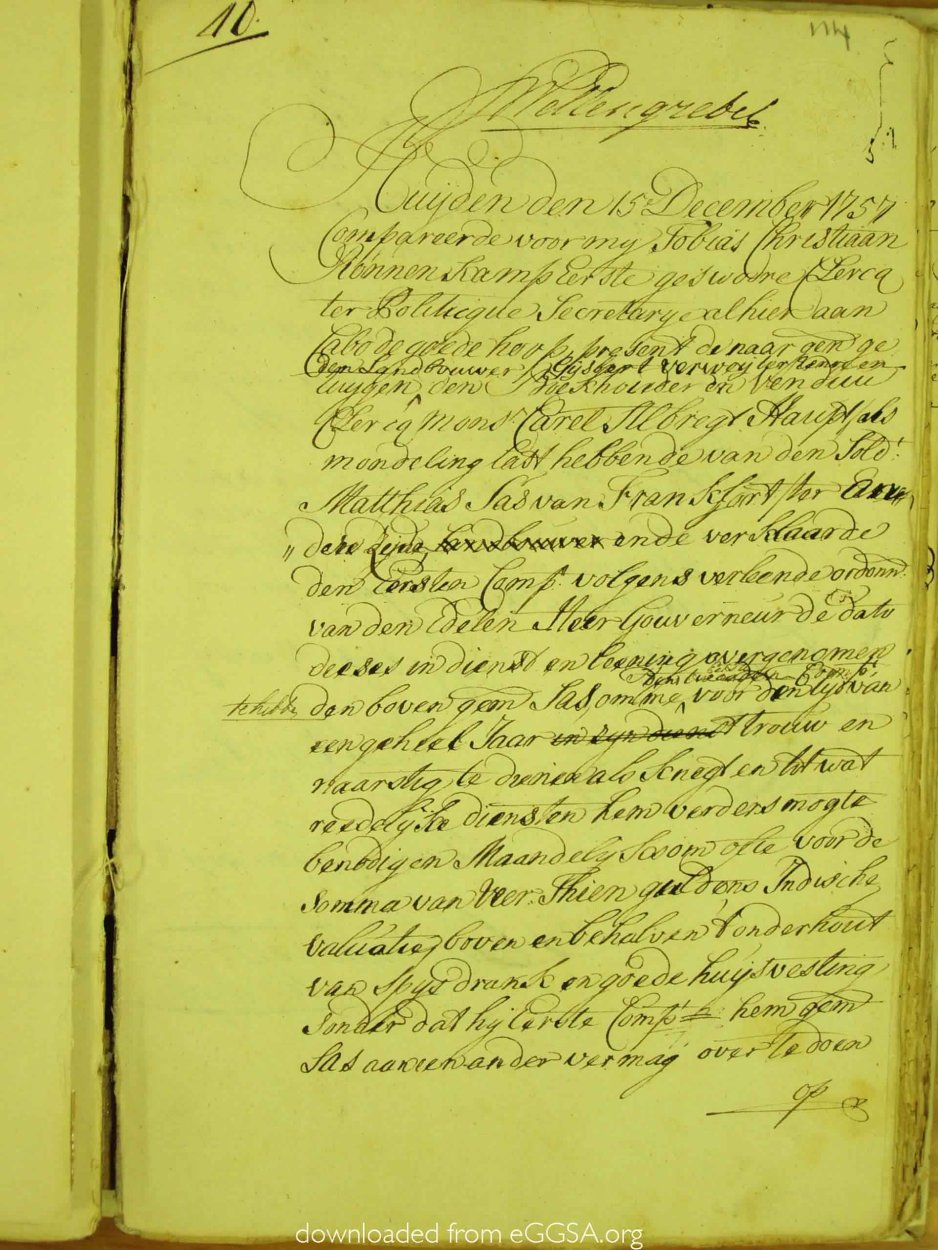 10.
114
Wellengrebel
Huijden den 15. December 1757
Compareerde voor my Tobias Christiaan
Rönnenkamp Eerste geswoore Clercq
ter Politicque Secretarye alhier aan
Cabo de goede hoop, present de naar gend ge
den Landbouwer Gijsbert Verwey ter eenre en
tuijgen, den Boekhouder en Vendue
Clercq Mons: Carel Albregt Haupt, als
mondeling last hebbende van den Sold:
Matthias Sas van Frankfort, ter an
„ dere zijde landbouwer ende verklaarde
den Eersten Comp: volgens verleende ordonn:
van den Edelen Heer Gouverneur de dato
deeses in dienst en leening overgenomen
Eerste Comp:t
te hebben den boven gem Sas, omme voor den tijd van
een geheel Jaar in zijn dienst trouw en
naarstig te dienen als knegt en tot wat
reedelijke diensten hem verders mogte
benodigen Maandelijks om ofte voor de
Somma van Veer-Thien guldens Indische
valuatie, boven en behalven 't onderhout
van Spys drank en goede huijsvesting
Sonder dat hij Eerste Comp:t hem gem
Sas aan een ander vermag over te doen
op
downloaded from eGGSA.org